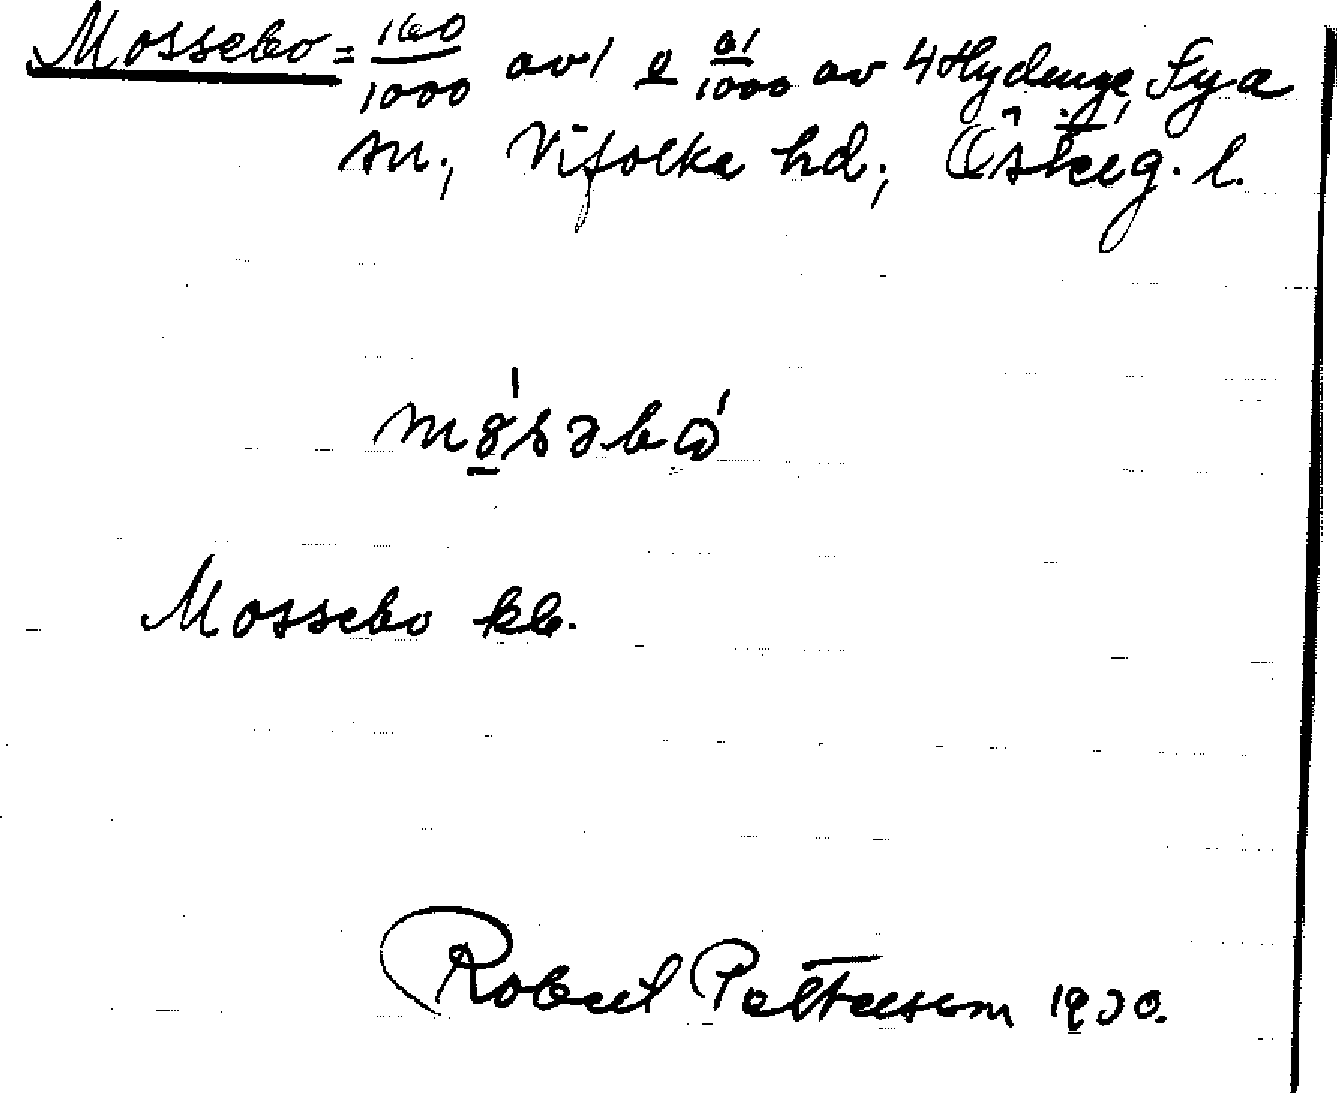 Mossebo = 160/1000 av 1 o 61/1000 av 4 Hydinge, Fya
sn., Vifolka hd., Österg. l.
Mossebo kb.
Robert Petterson 1930.